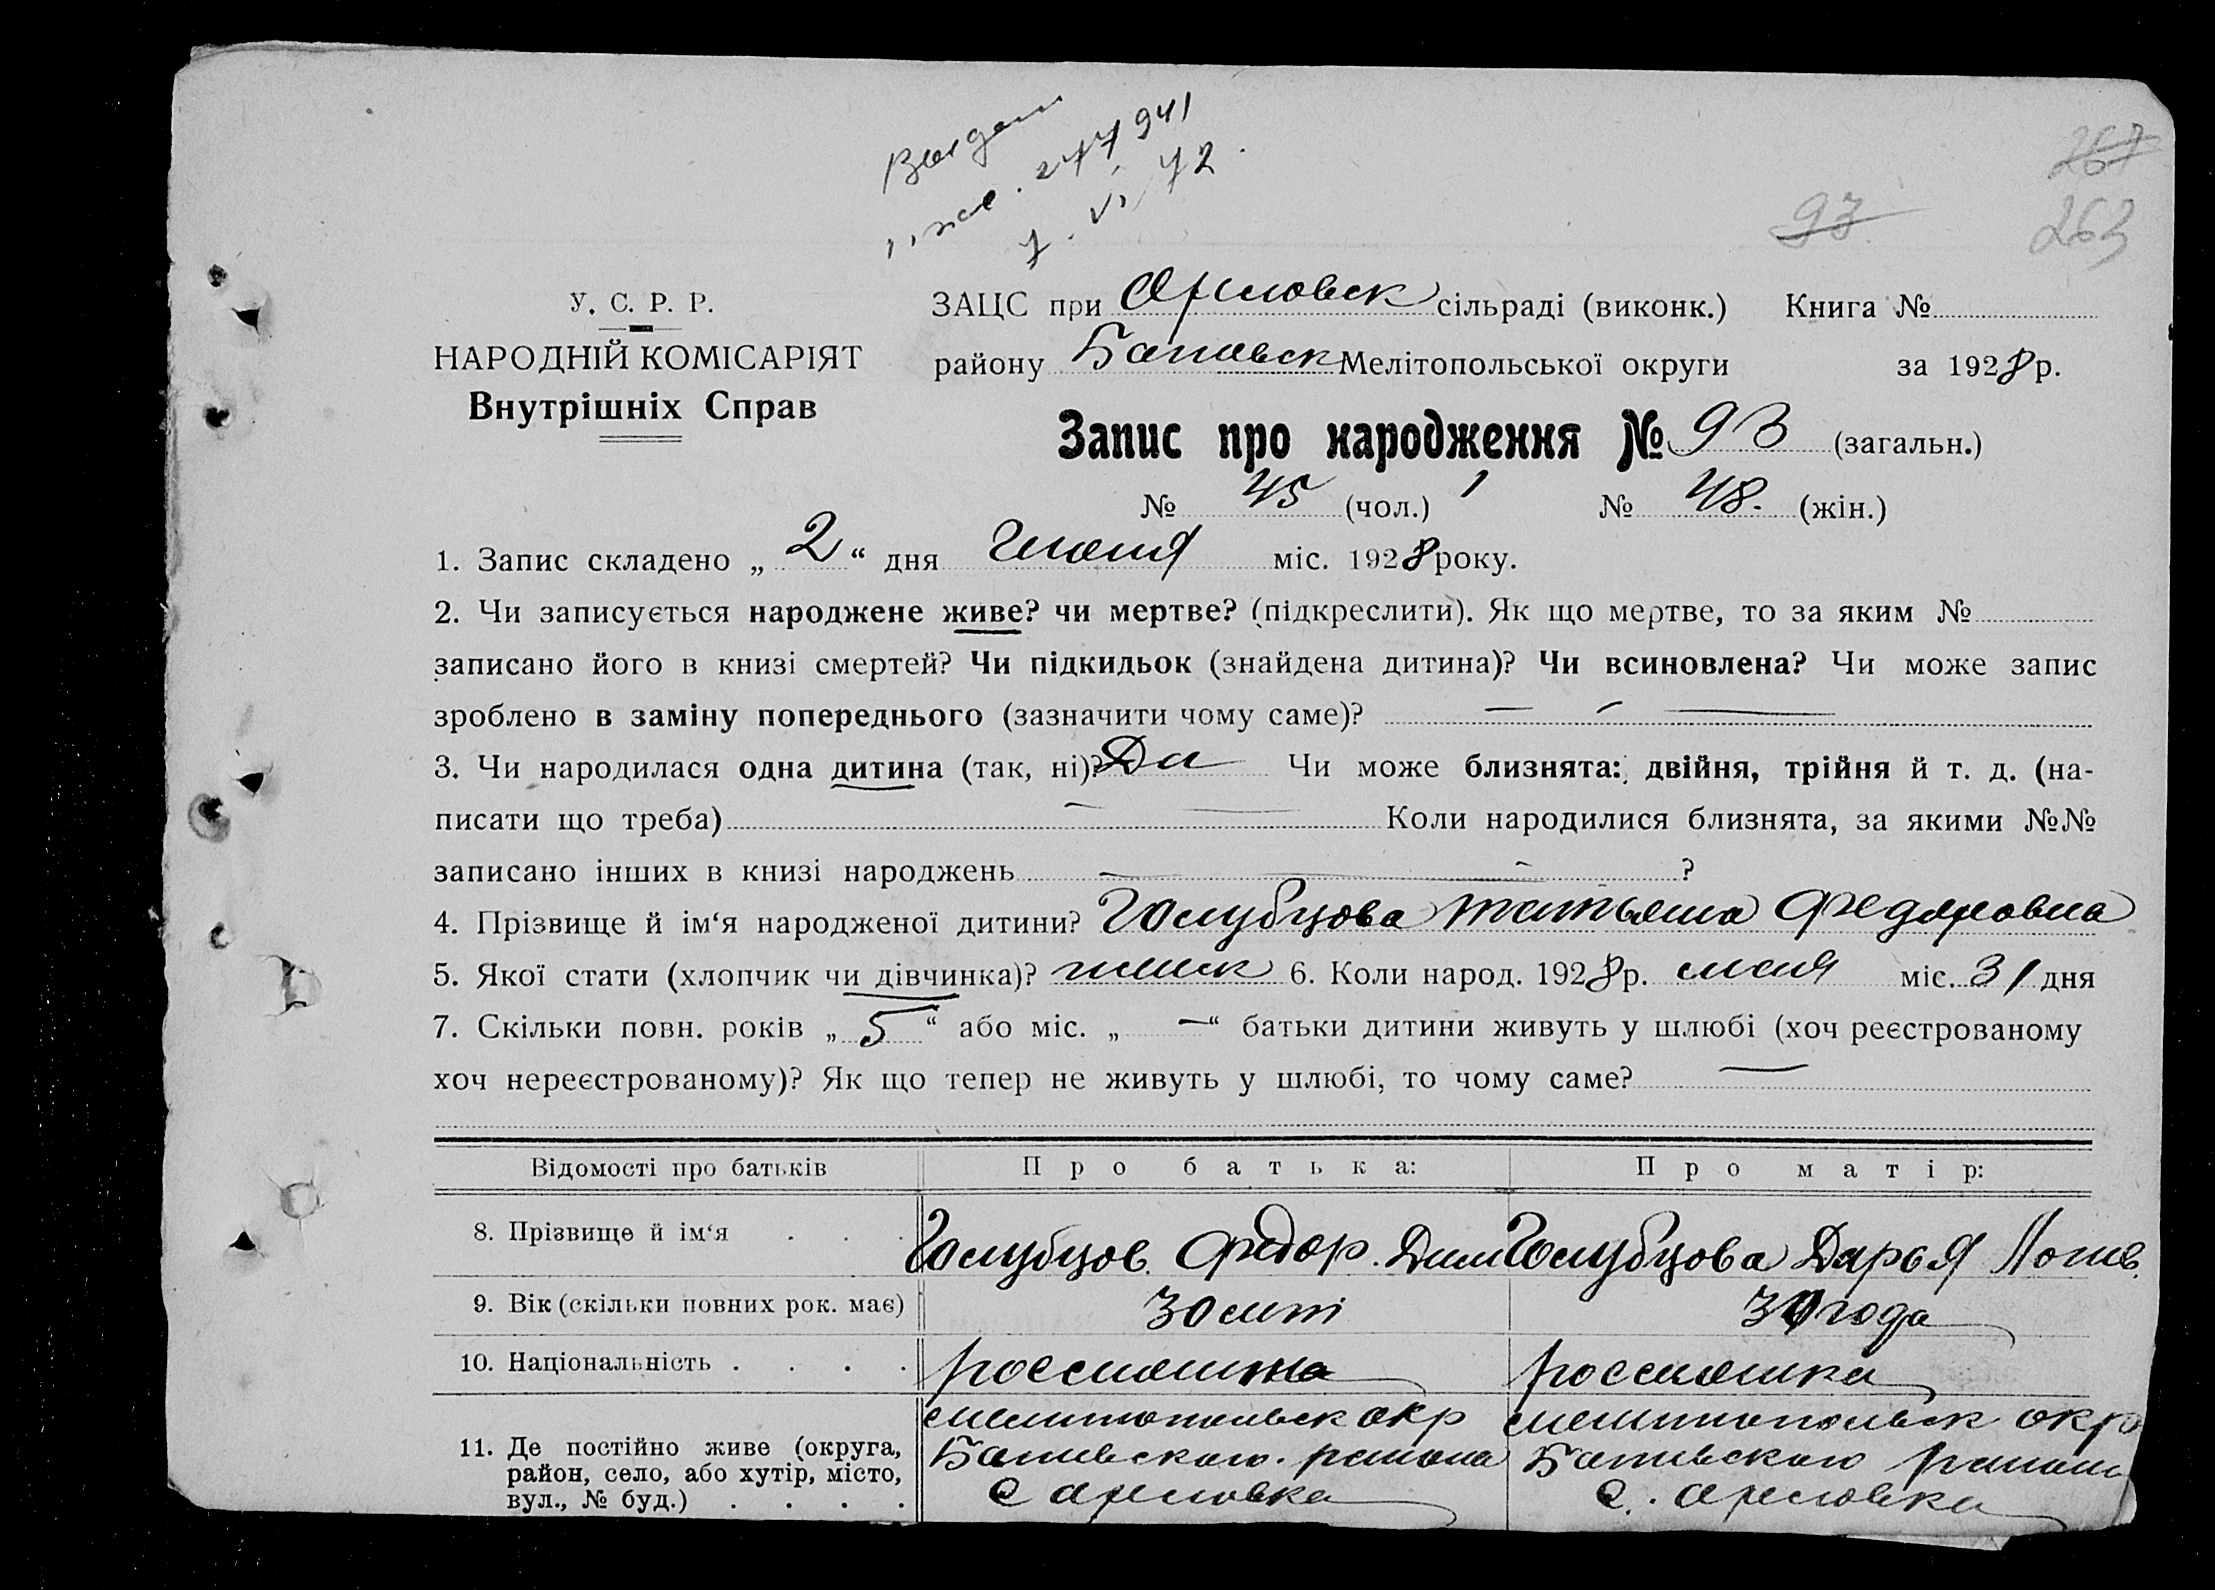 267
93 263
У. С. Р. Р.
НАРОДНІЙ КОМІСАРІЯТ
Внутрішніх Справ
ЗАЦС при Орловск сільраді (виконк.) Книга №
району Мелітопольської округи за 1928 р.
Запис про народження № 93 (загальн.)
№ 45 (чол.) № 48. (жін.)
1. Запис складено „ 2 “ дня міс. 1928 року.
2. Чи записується народжене живе? чи мертве? (підкреслити). Як що мертве, то за яким №
записано його в книзі смертей? Чи підкидьок (знайдена дитина)? Чи всиновлена? Чи може запис
зроблено в заміну попереднього (зазначити чому саме)? — — —
3. Чи народилася одна дитина (так, ні)? Да Чи може близнята: двійня, трійня й т. д. (на-
писати що треба) — — Коли народилися близнята, за якими №№
записано інших в книзі народжень — — ?
4. Прізвище й ім‘я народженої дитини? Голубцова Татьяна Федоровна
5. Якої стати (хлопчик чи дівчинка)? женск 6. Коли народ. 1928 р. мая міс. 31 дня
7. Скільки повн. років „ 5 “ або міс. „ — “ батьки дитини живуть у шлюбі (хоч реєстрованому
хоч нереєстрованому)? Як що тепер не живуть у шлюбі, то чому саме? —
Відомості про батьків Про батька: Про матір:
8. Прізвище й ім‘я . . . Голубцов Федор. Дим Голубцова Дарья Логив.
9. Вік (скільки повних рок. має) 30 лет 31 года
10. Національність . . . . россиянка
11. Де постійно живе (округа,
район, село, або хутір, місто,
вул., № буд.) . . . .
Мелитопольск окр
района
с Орловка
Мелитопольск окр
района
с. Орловка